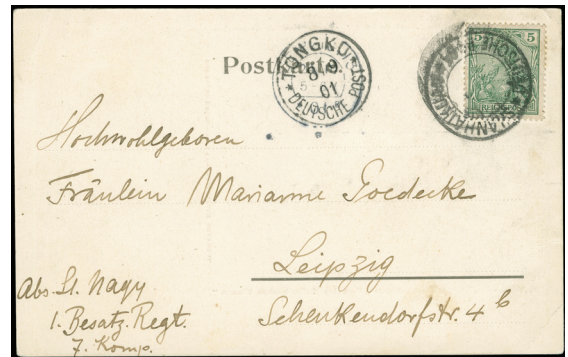 Postkarte
TONGKU
8/9
01
* DEUTSCHE POST *
5
5
REICHSPOST
Hochwohlgeboren
Fräulein Marianne Goedecke
Leipzig
Schenkendorfstr. 4 b
Abs. Lt. Nagy
1. Besatz. Regt.
7. Komp.